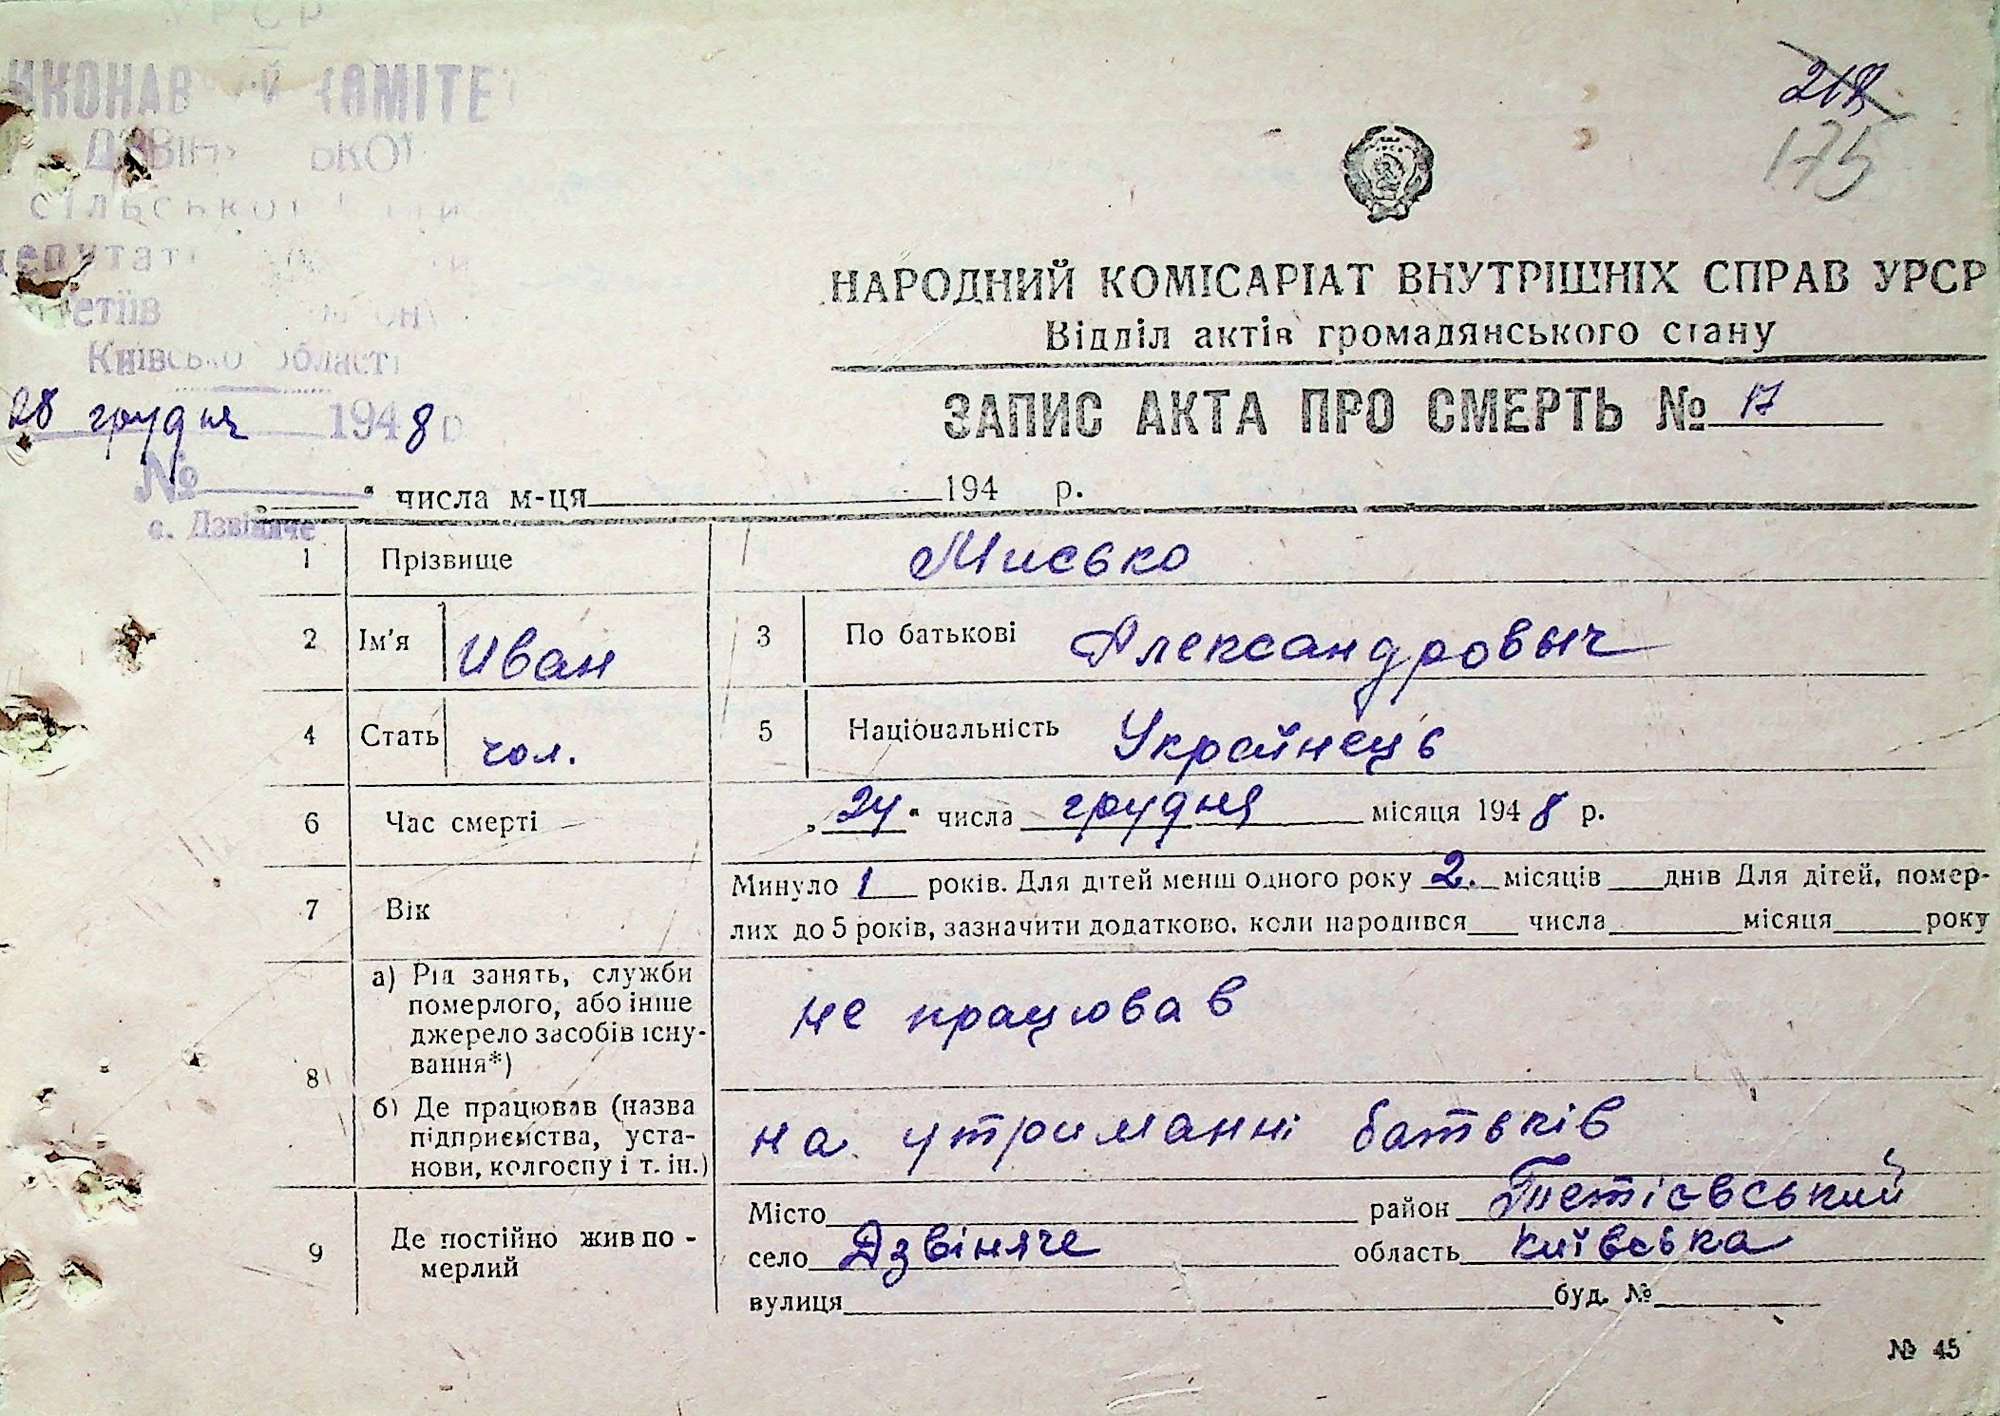 УРСР
ВИКОНАВЧИЙ КОМІТЕТ
ДЗВІНЯЦЬКОЇ
сільської
депутатів
Тетіїв
Київської області
28 грудня 1948 р
№
с. Дзвіняче
175
НАРОДНИЙ КОМІСАРІАТ ВНУТРІШНІХ СПРАВ УРСР
Відділ актів громадянського стану
ЗАПИС АКТА ПРО СМЕРТЬ № 17
„ “ числа м-ця 194 р.
1 Прізвище Мисько
2 Ім'я Иван 3 По батькові Александровыч
4 Стать чол. 5 Національність Українець
6 Час смерті „24“ числа грудня місяця 1948 р.
7 Вік Минуло 1 років. Для дітей менш одного року 2. місяців днів Для дітей, помер-
лих до 5 років, зазначити додатково, коли народився числа місяця року
8 а) Рід занять, служби
померлого, або інше
джерело засобів існу-
вання*)
не працював
б) Де працював (назва
підприємства, уста-
нови, колгоспу і т. ін.)
на утриманні батьків
9 Де постійно жив по-
мерлий
Місто район Тетієвський
село Дзвіняче область Київська
вулиця буд. №
№ 45